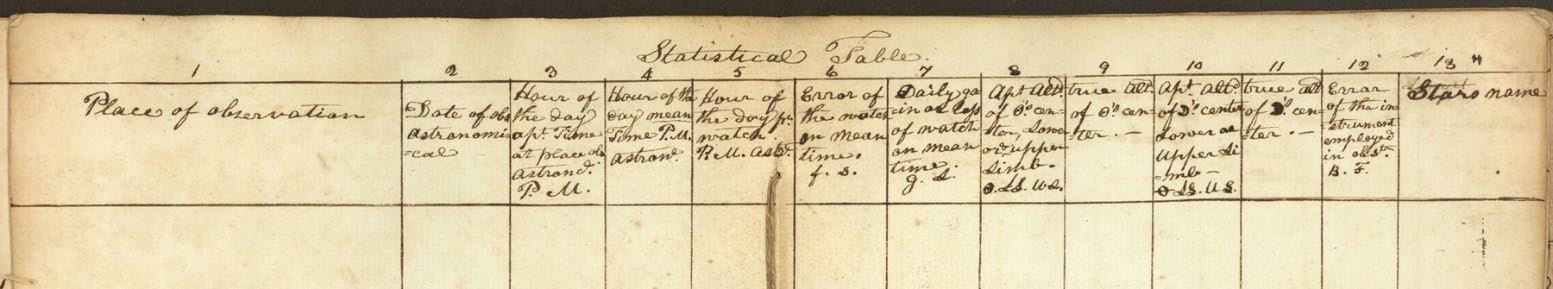 Statistical Table.
1 2 3 4 5 6 7 8 9 10 11 12 13
Place of observation
Date of obs
astronomi
=cal
Hour of
the day
apt. Time
at place ob
astrond.
P. M.
Hour of the
day mean
Time P. M.
astrond.
Hour of
the day pr.
watch.
P. M. astd.
Error of
the watch
on mean
time.
f. s.
Daily ga
in or loss
of watch
on mean
time.
g. L.
Apt altd.
of ʘ's cen-
ter, Lower
or upper
Limb.
ʘ. LS. U S.
true alt.
of ʘ's cen-
ter. -
Apt. altd.
of D's center
Lower or
Upper Li
=mb-
ʘ LS. U S.
true alt
of D's cen-
-ter. -
Error
of the in
=strument
employed
in obsn.
B. F.
Stars name